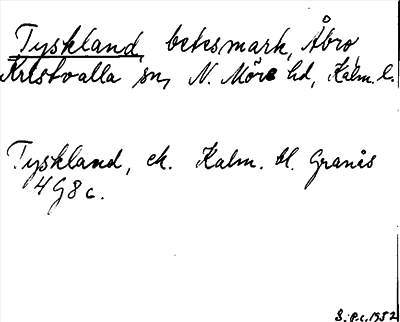 Tyskland, betesmark, Åbro,
Kristvalla sn, N. Möre hd, Kalm. l.
Tyskland, ek. Kalm. bl. Granås
4 G 8 c.
S. P. c. 1952